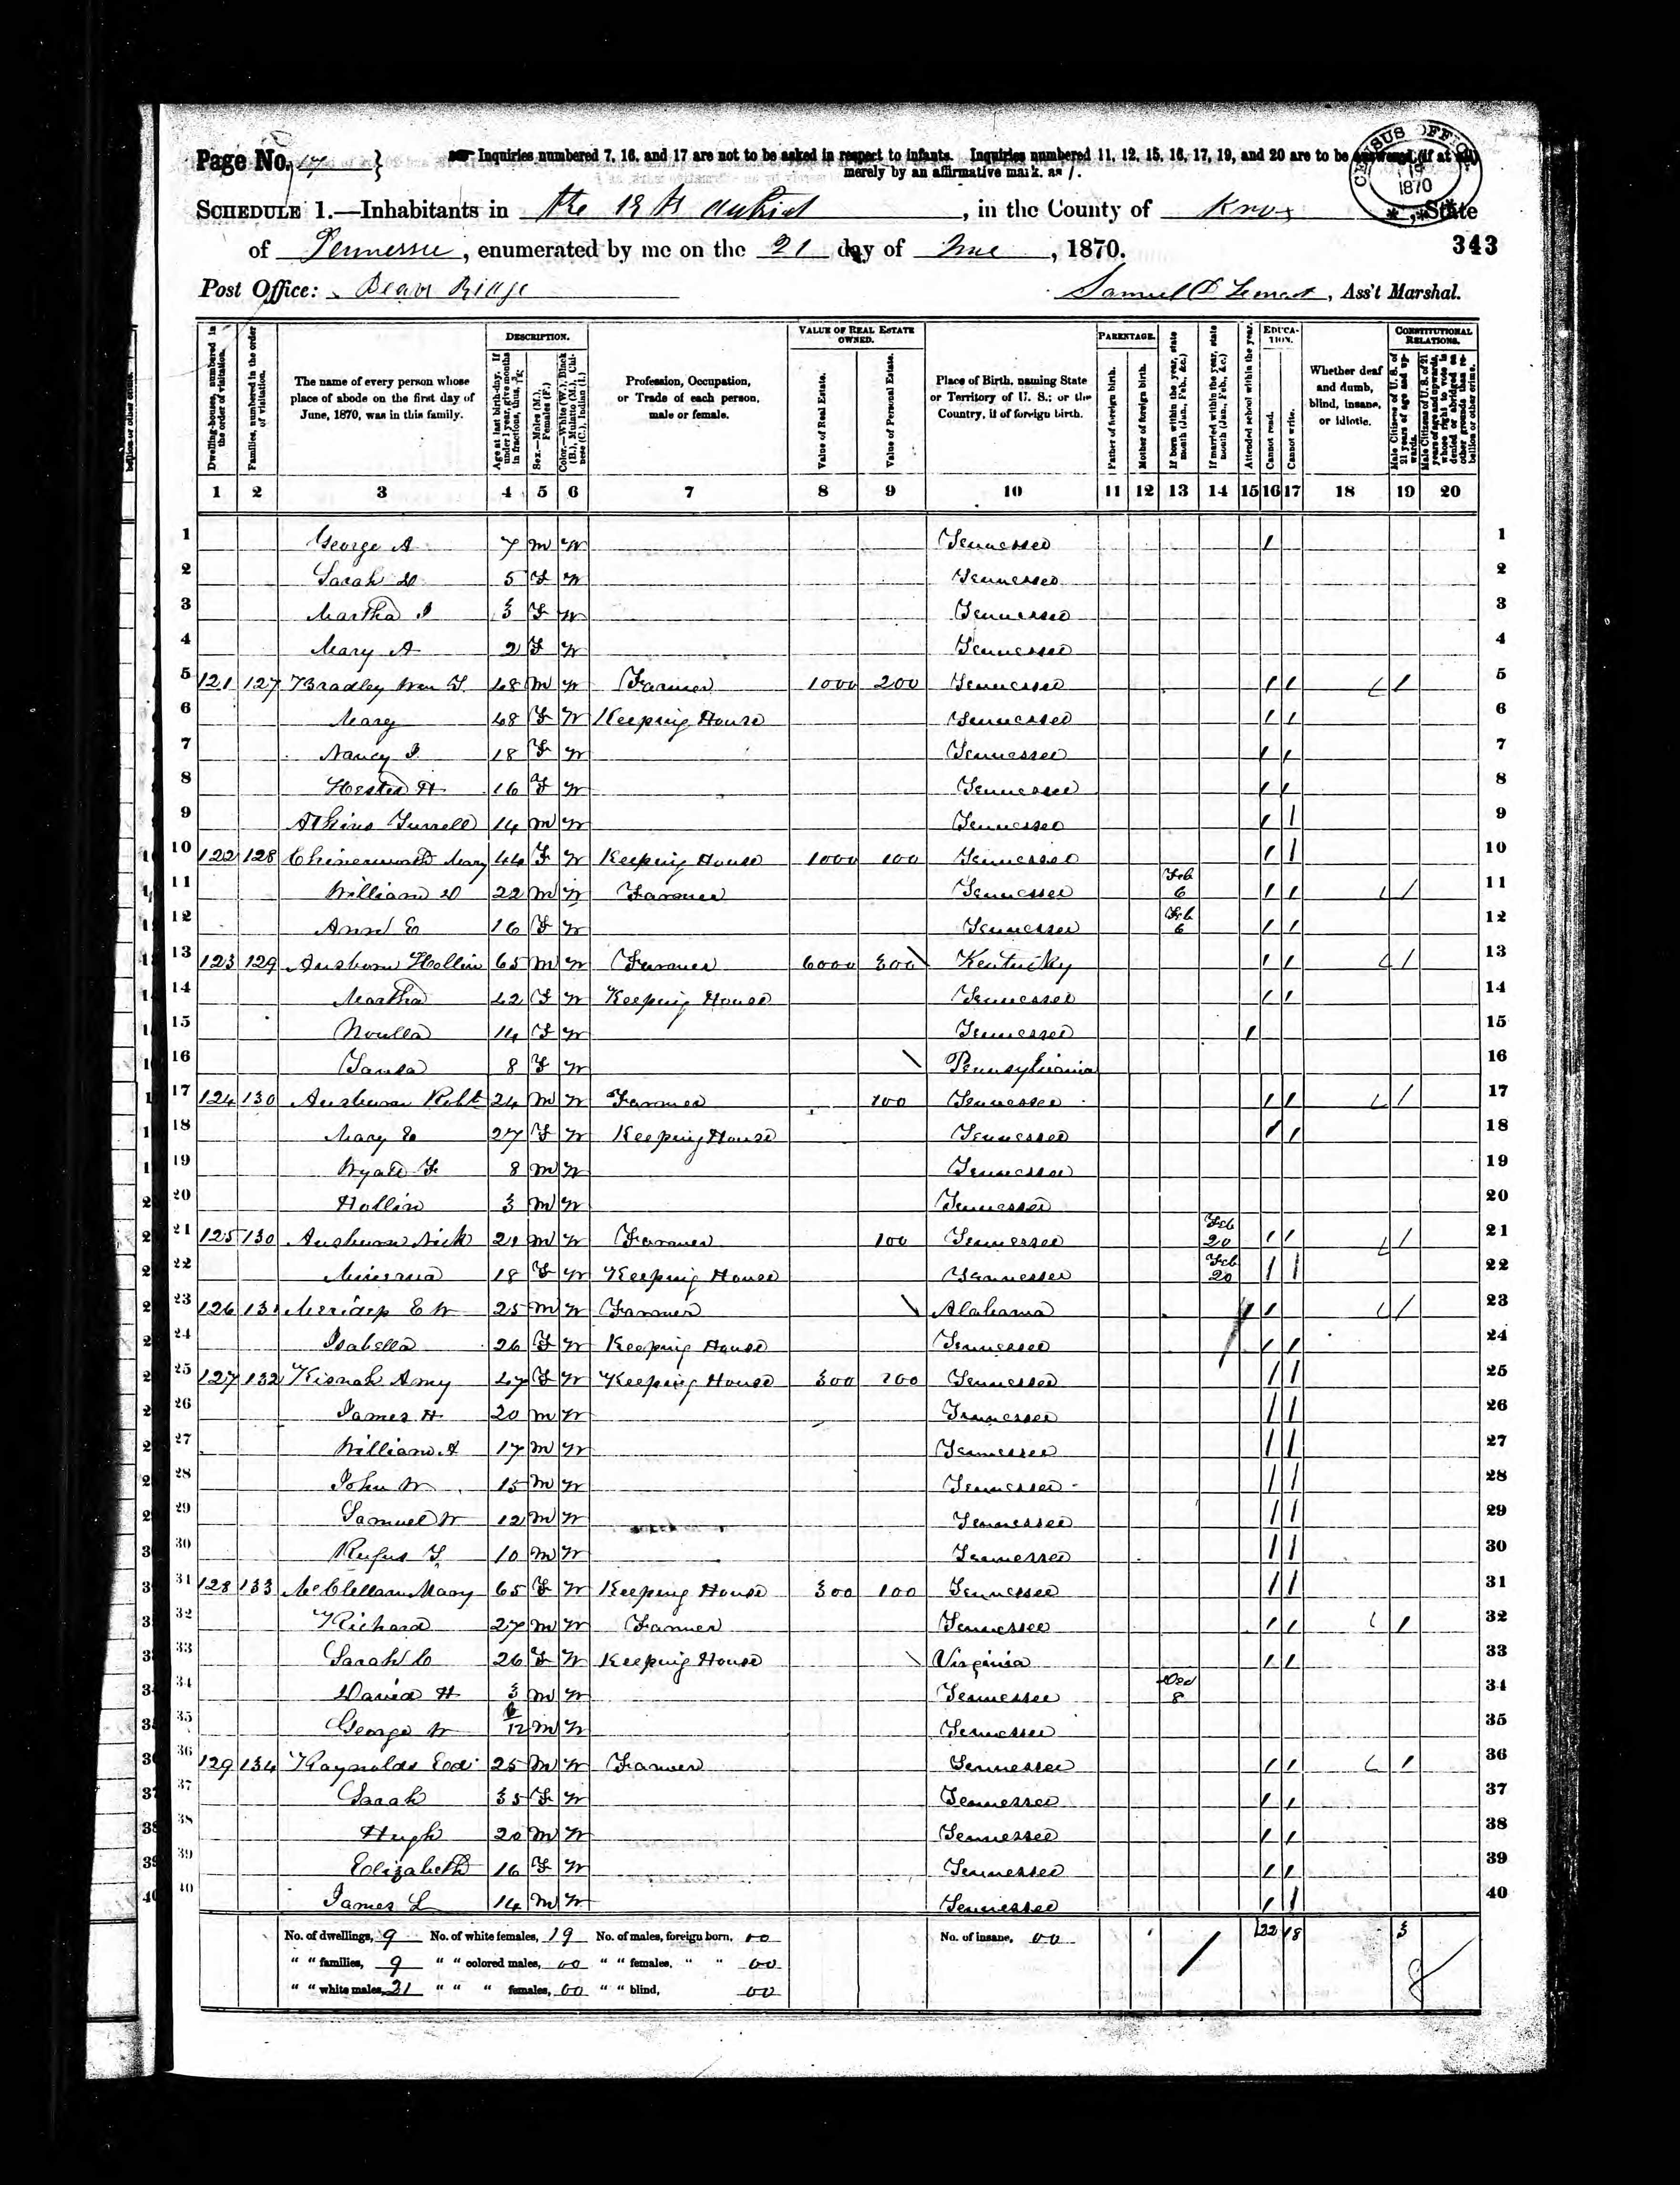 Page No. 17 }
Inquiries numbered 7, 16, and 17 are not to be asked in respect to infants. Inquiries numbered 11, 12, 15, 16, 17, 19, and 20 are to be answered (if at all)
merely by an affirmative mark, as /.
CENSUS OFFICE 1870
SCHEDULE 1.—Inhabitants in the 12th district, in the County of Knox, State
of Tennessee, enumerated by me on the 21 day of June, 1870.
343
Post Office: Beaver Ridge
Samuel, Ass't Marshal.
Dwelling-houses, numbered in the order of visitation.
Families, numbered in the order of visitation.
The name of every person whose place of abode on the first day of June, 1870, was in this family.
DESCRIPTION.
Age at last birth-day. If under 1 year, give months in fractions, thus, 3/12
Sex.—Males (M.), Females (F.)
Color.—White (W.), Black (B.), Mulatto (M.), Chinese (C.), Indian (I.)
Profession, Occupation, or Trade of each person, male or female.
VALUE OF REAL ESTATE OWNED.
Value of Real Estate.
Value of Personal Estate.
Place of Birth, naming State or Territory of U. S.; or the Country, if of foreign birth.
PARENTAGE.
Father of foreign birth.
Mother of foreign birth.
If born within the year, state month (Jan., Feb., &c.)
If married within the year, state month (Jan., Feb., &c.)
Attended school within the year.
EDUCATION.
Cannot read.
Cannot write.
Whether deaf and dumb, blind, insane, or idiotic.
CONSTITUTIONAL RELATIONS.
Male Citizens of U. S. of 21 years of age and upwards.
Male Citizens of U. S. of 21 years of age and upwards, whose right to vote is denied or abridged on other grounds than rebellion or other crime.
1 2 3 4 5 6 7 8 9 10 11 12 13 14 15 16 17 18 19 20
1 George A 7 M W Tennessee / 1
2 Sarah D 5 F W Tennessee 2
3 Martha J 3 F W Tennessee 3
4 Mary A 2 F W Tennessee 4
5 121 127 Bradley Wm T. 48 M W Farmer 1000 200 Tennessee / / / 5
6 Mary 48 F W Keeping House Tennessee / / 6
7 Nancy J 18 F W Tennessee / / 7
8 Hester A 16 F W Tennessee / / 8
9 Atkins 14 M W Tennessee / / 9
10 122 128 Mary 44 F W Keeping House 1000 100 Tennessee / / 10
11 William D 22 M W Farmer Tennessee Feb 6 / / / 11
12 Ann E 16 F W Tennessee Feb 6 / / 12
13 123 129 Ausburn Hollin 65 M W Farmer 6000 300 Kentucky / / / 13
14 Martha 42 F W Keeping House Tennessee / / 14
15 14 F W Tennessee / 15
16 8 F W Pennsylvania 16
17 124 130 Ausburn Robt 24 M W Farmer 100 Tennessee / / / 17
18 Mary E 27 F W Keeping House Tennessee / / 18
19 Wyatt F 8 M W Tennessee 19
20 Hollin 3 M W Tennessee 20
21 125 130 Ausburn Nick 21 M W Farmer 100 Tennessee Feb 20 / / / 21
22 Minerva 18 F W Keeping House Tennessee Feb 20 / / 22
23 126 131 E W 25 M W Farmer Alabama / / / 23
24 Isabella 26 F W Keeping House Tennessee / / 24
25 127 132 Amy 47 F W Keeping House 300 100 Tennessee / / 25
26 James H 20 M W Tennessee / / 26
27 William A 17 M W Tennessee / / 27
28 John W 15 M W Tennessee / / 28
29 Samuel W 12 M W Tennessee / / 29
30 Rufus 10 M W Tennessee / / 30
31 128 133 McClellan Mary 65 F W Keeping House 300 100 Tennessee / / 31
32 Richard 27 M W Farmer Tennessee / / / 32
33 Sarah C 26 F W Keeping House Virginia / / 33
34 David H 3 M W Tennessee 8 34
35 George W 6/12 M W Tennessee 35
36 129 134 Raynolds 25 M W Farmer Tennessee / / / 36
37 Sarah 35 F W Tennessee / / 37
38 Hugh 20 M W Tennessee / / 38
39 Elizabeth 16 F W Tennessee / / 39
40 James L 14 M W Tennessee / / 40
No. of dwellings, 9 No. of white females, 19 No. of males, foreign born, 00 No. of insane, 00 22 18 3
" " families, 9 " " colored males, 00 " " females, " " 00
" " white males, 21 " " " females, 00 " " blind, 00 8